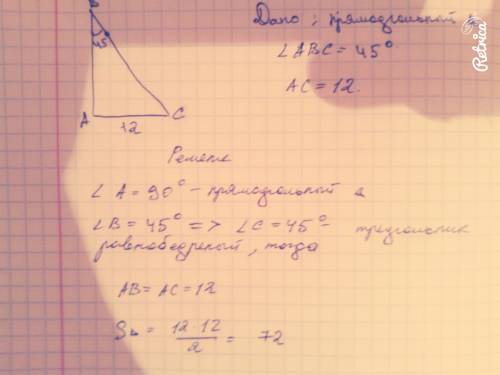 B
45
A
12
C
Дано: прямоугольный △
∠ABC = 45°
AC = 12.
Retrica
Решение
∠A = 90° - прямоугольный △
∠B = 45° => ∠C = 45° - треугольник
равнобедреный, тогда
AB = AC = 12
S△ = 12·12 / 2 = 72